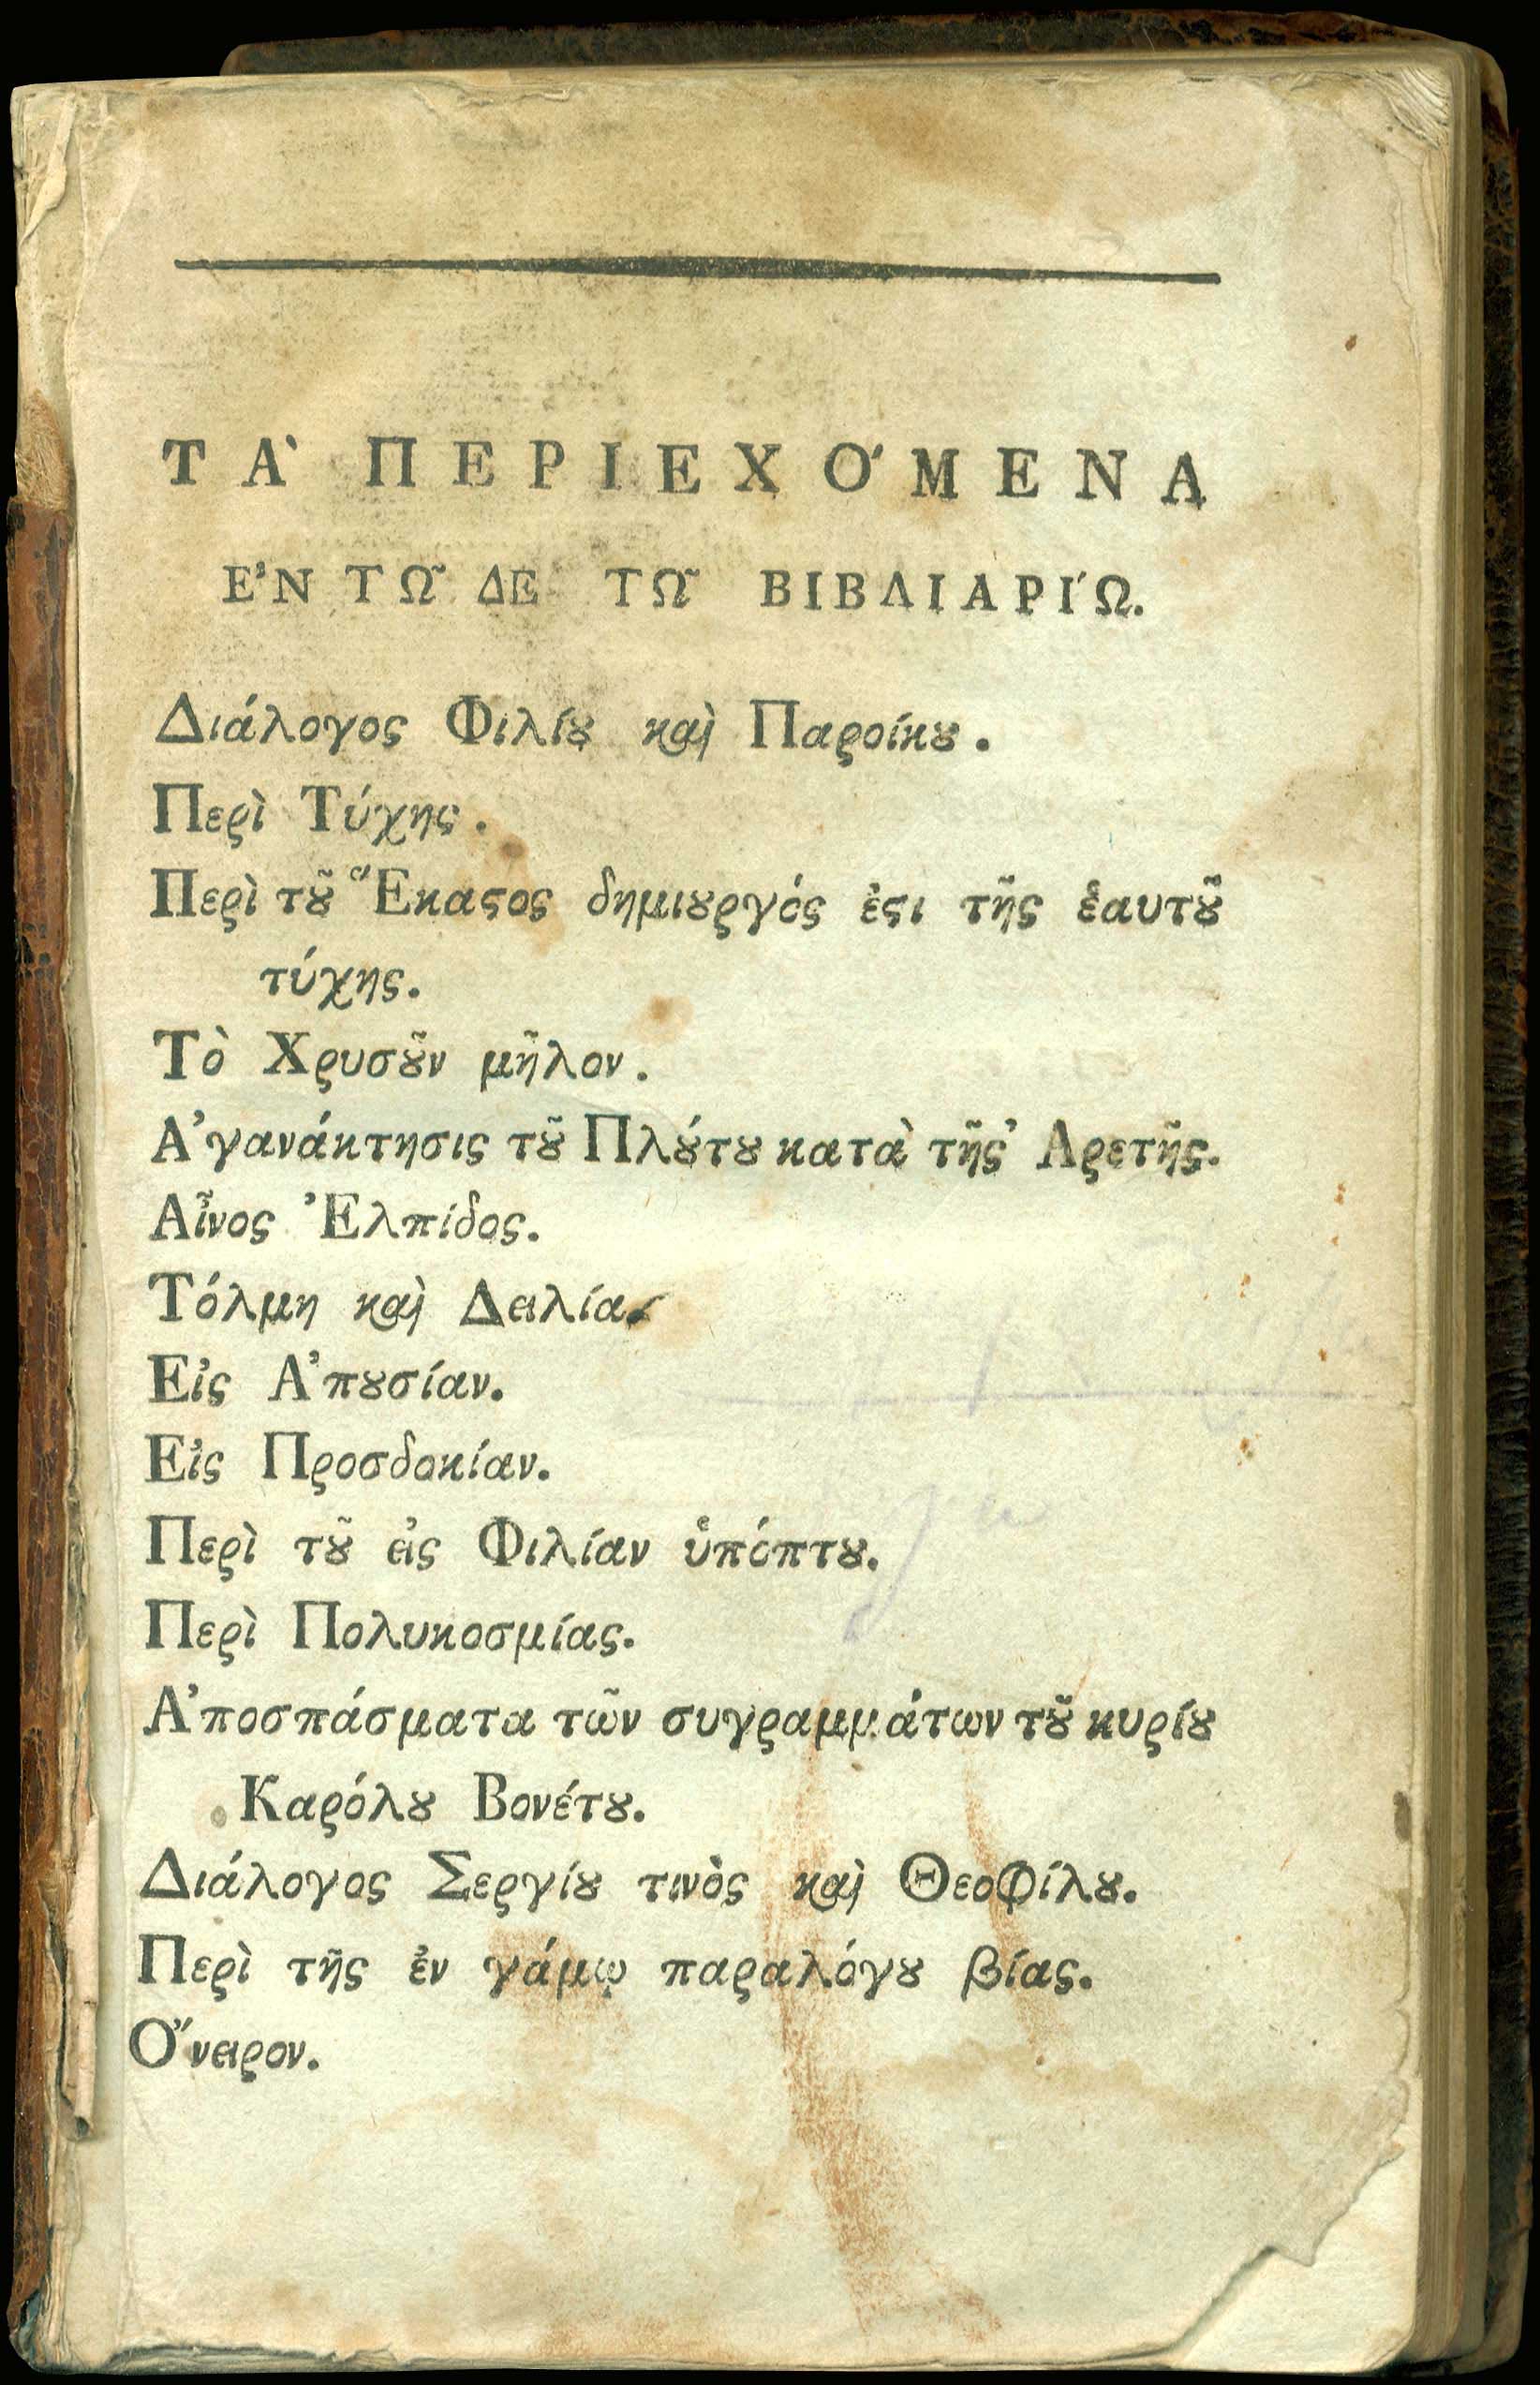 ΤᾺ ΠΕΡΙΕΧΌΜΕΝΑ
ΕἘΝ ΤΩ͂ ΔΕ ΤΩ͂ ΒΙΒΛΙΑΡΊΩ.
Διάλογος Φιλίȣ καὶ Παροίκȣ.
Περὶ Τύχης.
Περὶ τȣ͂ Ἕκαϛος δημιȣργός ἐϛι τῆς ἑαυτȣ͂
τύχης.
Τὸ Χρυσȣ͂ν μῆλον.
Ἀγανάκτησις τȣ͂ Πλȣ́τȣ κατὰ τῆς Ἀρετῆς.
Αἶνος Ἐλπίδος.
Τόλμη καὶ Δειλία.
Εἰς Ἀπȣσίαν.
Εἰς Προσδοκίαν.
Περὶ τȣ͂ εἰς Φιλίαν ὑπόπτȣ.
Περὶ Πολυκοσμίας.
Ἀποσπάσματα τῶν συγραμμάτων τȣ͂ κυρίȣ
Καρόλȣ Βονέτȣ.
Διάλογος Σεργίȣ τινὸς καὶ Θεοφίλȣ.
Περὶ τῆς ἐν γάμῳ παραλόγȣ βίας.
Ὄνειρον.